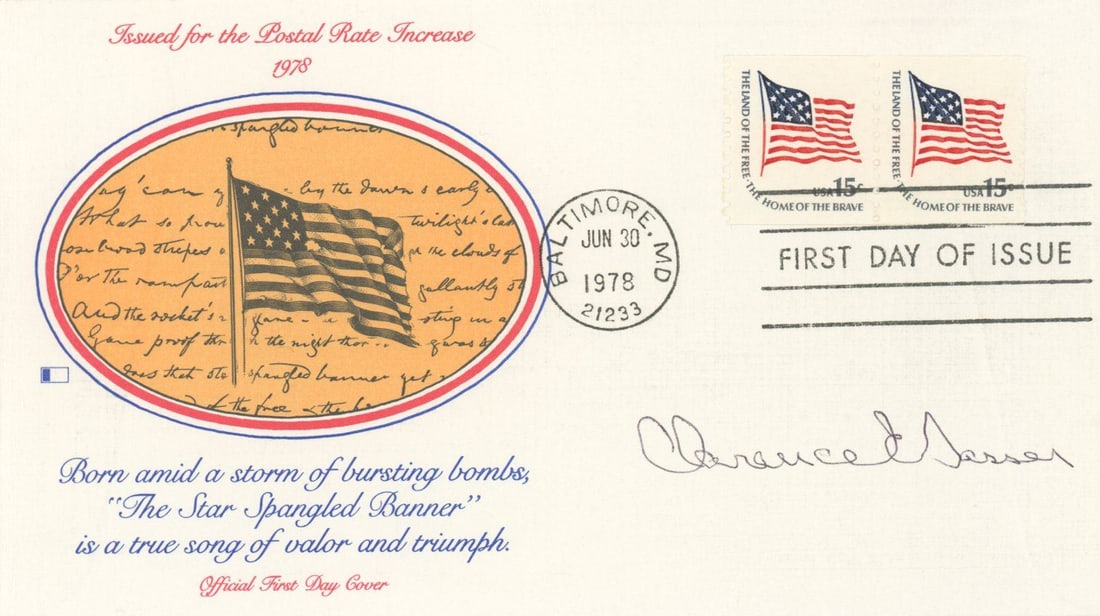 Issued for the Postal Rate Increase
1978
spangled banner
say can y
by the dawn's early
What so prou
twilight's las
stripes
the clouds of
O'er the rampart
gallantly st
And the rocket's
Gave proof thr
the night
does that
spangled banner yet
of the free & the
Born amid a storm of bursting bombs,
"The Star Spangled Banner"
is a true song of valor and triumph.
Official First Day Cover
THE LAND OF THE FREE·THE HOME OF THE BRAVE
USA 15c
THE LAND OF THE FREE·THE HOME OF THE BRAVE
USA 15c
BALTIMORE, MD
JUN 30
1978
21233
FIRST DAY OF ISSUE
Clarence E Sasser